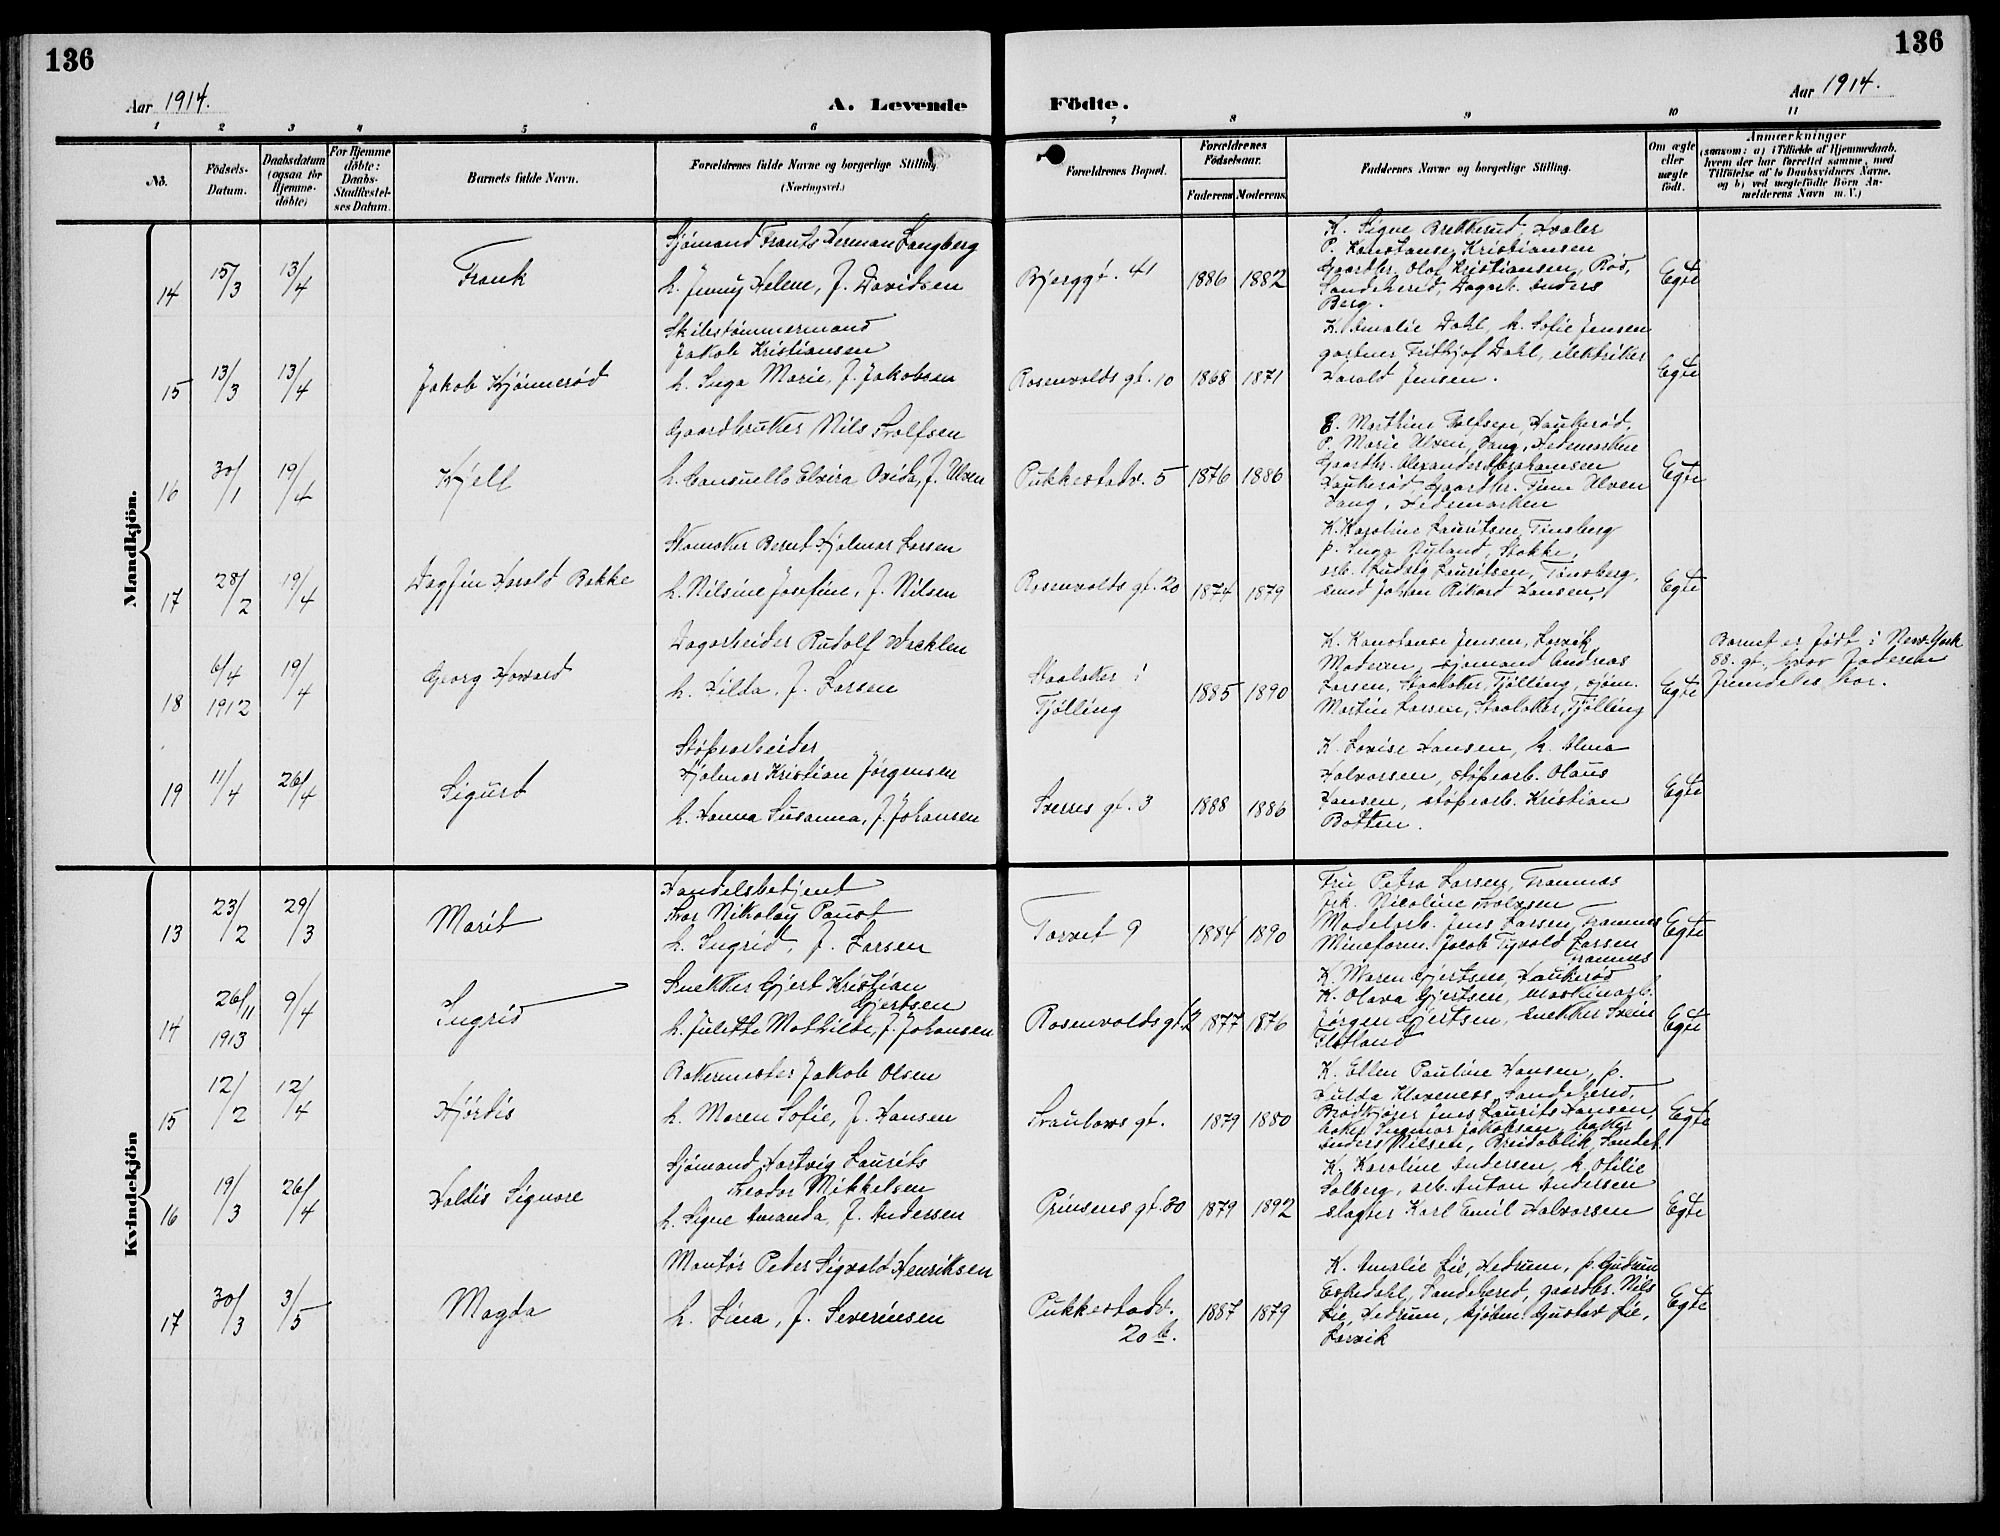 136
136
Aar 1914.
A. Levende Födte.
Aar 1914.
1 2 3 4 5 6 7 8 9 10 11
No.
Födsels-
Datum.
Daabsdatum
(ogsaa for
Hjemme-
döbte)
For Hjemme
döbte:
Daabs-
Stadfæstel-
ses Datum.
Barnets fulde Navn.
Forældrenes fulde Navne og borgerlige Stilling
(Næringsvei.)
Forældrenes Bopæl.
Forældrenes
Födselsaar.
Faderens Moderens
Faddernes Navne og borgerlige Stilling.
Om ægte
eller
uægte
födt.
Anmærkninger
(saasom: a) i Tilfælde af Hjemmedaab,
hvem der har forrettet samme, med
Tilföielse af to Daabsvidners Navne,
og b) ved uægtefödte Börn An-
melderens Navn m. V.)
Mandkjön.
14 15/3 13/4 Frank
Sjömand Frants Herman Langberg
h. Jenny Helene, f. Davidsen
Bjerggt. 41 1886 1882
K. Signe Brekkerud, Hvaler
P. Konstanse Kristiansen
Gaardbr. Olaf Kristiansen, Röd,
Sandeherid, Dagarb. Anders
Berg.
Egte
15 13/3 13/4 Jakob Hjönnerød
Skibstömmermand
Jakob Kristiansen
h. Inga Marie, f. Jakobsen
Rosenvolds gt. 10 1868 1871
K. Amalie Dahl, k. Sofie Jensen
gartner Fritjof Dahl, elektriker
Harald Jensen.
Egte
16 30/1 19/4 Kjell
Gaardbruker Nils Trolfsen
h. Consuello Elvira Ovida, f. Ulven
Pukkestadv. 5 1876 1886
E. Marthine Trolfsen, Haukeröd,
P. Marie Ulven, Vang, Hedemarken
Gaardbr. Alexander Abrahamsen
Haukeröd Gaardbr. Ulven
Vang, Hedemarken
Egte
17 28/2 19/4 Dagfin Harald Bakke
Skomaker Bernt Hjalmar Larsen
h. Nilsine Josefine, f. Nilsen
Rosenvolds gt. 20 1874 1879
K. Karoline Lauritsen, Tönsberg
p. Inga Nyland, Stokke,
arb. Ludvig Lauritsen, Tönsberg,
smed Johan Rikard Hansen.
Egte
18 6/4 1912 19/4 Georg Howard
Dagarbeider Rudolf Wacklen
h. Hilda, f. Larsen
Staalaker i
Tjölling
1885 1890
K. Konstanse Jensen, Larvik
Moderen, sjömand Andreas
Larsen, Staalaker, Tjölling, sjöm.
Martin Larsen, Staalaker, Tjölling
Egte
Barnet er födt i New-York
88. gt. hvor faderen
fremdeles bor.
19 11/4 26/4 Sigurd
Stöperarbeider
Hjalmar Kristian Jörgensen
h. Hanna Susanna, f. Johansen
Sverres gt. 3 1888 1886
K. Lovise Hansen, k. Alma
Halvorsen, stöperarb. Olaus
Hansen, stöperarb. Kristian
Botten.
Egte
Kvindekjön
13 23/2 29/3 Marit
Handelsbetjent
Ivar Nikolay Paust
h. Ingrid, f. Larsen
Torvet 9 1884 1890
Fru Petra Larsen, Framnæs
frk. Nicoline
Modelarb. Jens Larsen, Framnæs
Mineform. Jacob Larsen
Framnæs
Egte
14 26/11 1913 9/4 Ingrid
Snekker Gjert Kristian
Gjertsen
h. Julette Mathilde, f. Johansen
Rosenvolds gt. 2 1877 1876
K. Maren Gjertsen, Haukeröd
K. Olava Gjertsen, maskinarb.
Jörgen Gjertsen, snekker Svein
Flotland
Egte
15 12/2 12/4 Hjördis
Bakermester Jakob Olsen
h. Maren Sofie, f. Hansen
Traulovs gt. 1879 1880
K. Ellen Pauline Hansen, p.
Hulda Klavenæss, Sandeherid,
Brödkjörer Jens Laurits Hansen
baker Ingmar Jakobsen, baker
Anders Nilsen, Breidablik, Sandeh.
Egte
16 19/3 26/4 Haldis Signore
Sjömand Hartvig Laurits
Teodor Mikkelsen
h. Signe Amanda, f. Andersen
Prinsens gt. 30 1879 1892
K. Karoline Andersen, k. Otilie
Solberg, arb. Anton Andersen
slagter Karl Emil Halvorsen
Egte
17 30/3 3/5 Magda
Montör Peder Sigvald Henriksen
h. Lina, f. Severinsen
Pukkestadv.
20 b.
1887 1879
K. Amalie Lie, Hedrum, p. Gudrun
Eskedahl, Sandeherid, gaardbr. Nils
Lie, Hedrum, kjöbm. Gustav Lie,
Larvik
Egte